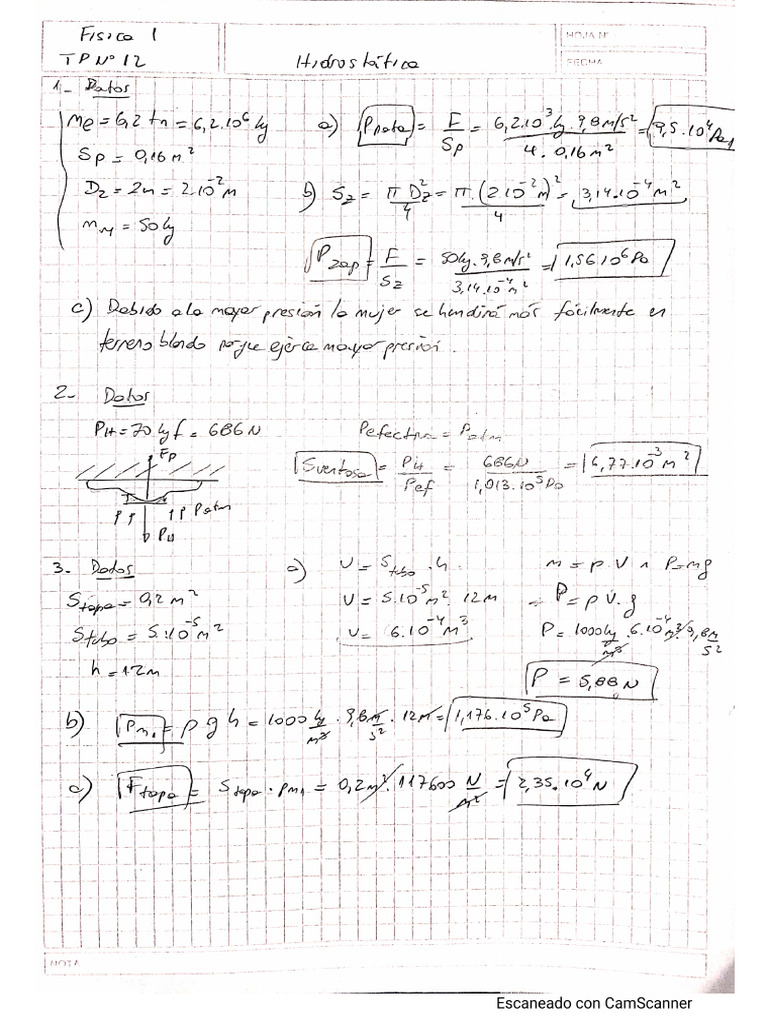 Fisica 1
TP Nº 12
Hidrostática
HOJA Nº
FECHA
1- Datos
me = 6,2 tn = 6,2.10⁶ kg
Sp = 0,16 m²
Dz = 2cm = 2.10⁻² m
mm = 50 kg
a) Ppata = F/Sp = 6,2.10³ kg . 9,8 m/s² / 4 . 0,16 m² = 9,5.10⁴ Pa
b) Sz = π Dz²/4 = π . (2.10⁻² m)²/4 = 3,14.10⁻⁴ m²
Pzap = F/Sz = 50kg . 9,8 m/s² / 3,14.10⁻⁴ m² = 1,56.10⁶ Pa
c) Debido a la mayor presión la mujer se hundirá más fácilmente en
terreno blando porque ejerce mayor presión.
2- Datos
PH = 70 kgf = 686 N
Pefectiva = Patm
Fp
Patm
PH
Sventosa = PH/Pef = 686N / 1,013.10⁵ Pa = 6,77.10⁻³ m²
3- Datos
Stapa = 0,2 m²
Stubo = 5.10⁻⁵ m²
h = 12m
a) V = Stubo . h
V = 5.10⁻⁵ m² . 12m
V = 6.10⁻⁴ m³
m = ρ.V ∧ P = mg
P = ρ V. g
P = 1000 kg/m³ . 6.10⁻⁴ m³ . 9,8 m/s²
P = 5,88 N
b) Pm1 = ρ g h = 1000 kg/m³ . 9,8 m/s² . 12m = 1,176.10⁵ Pa
c) Ftapa = Stapa . Pm1 = 0,2 m² . 117600 N/m² = 2,35.10⁴ N
NOTA
Escaneado con CamScanner